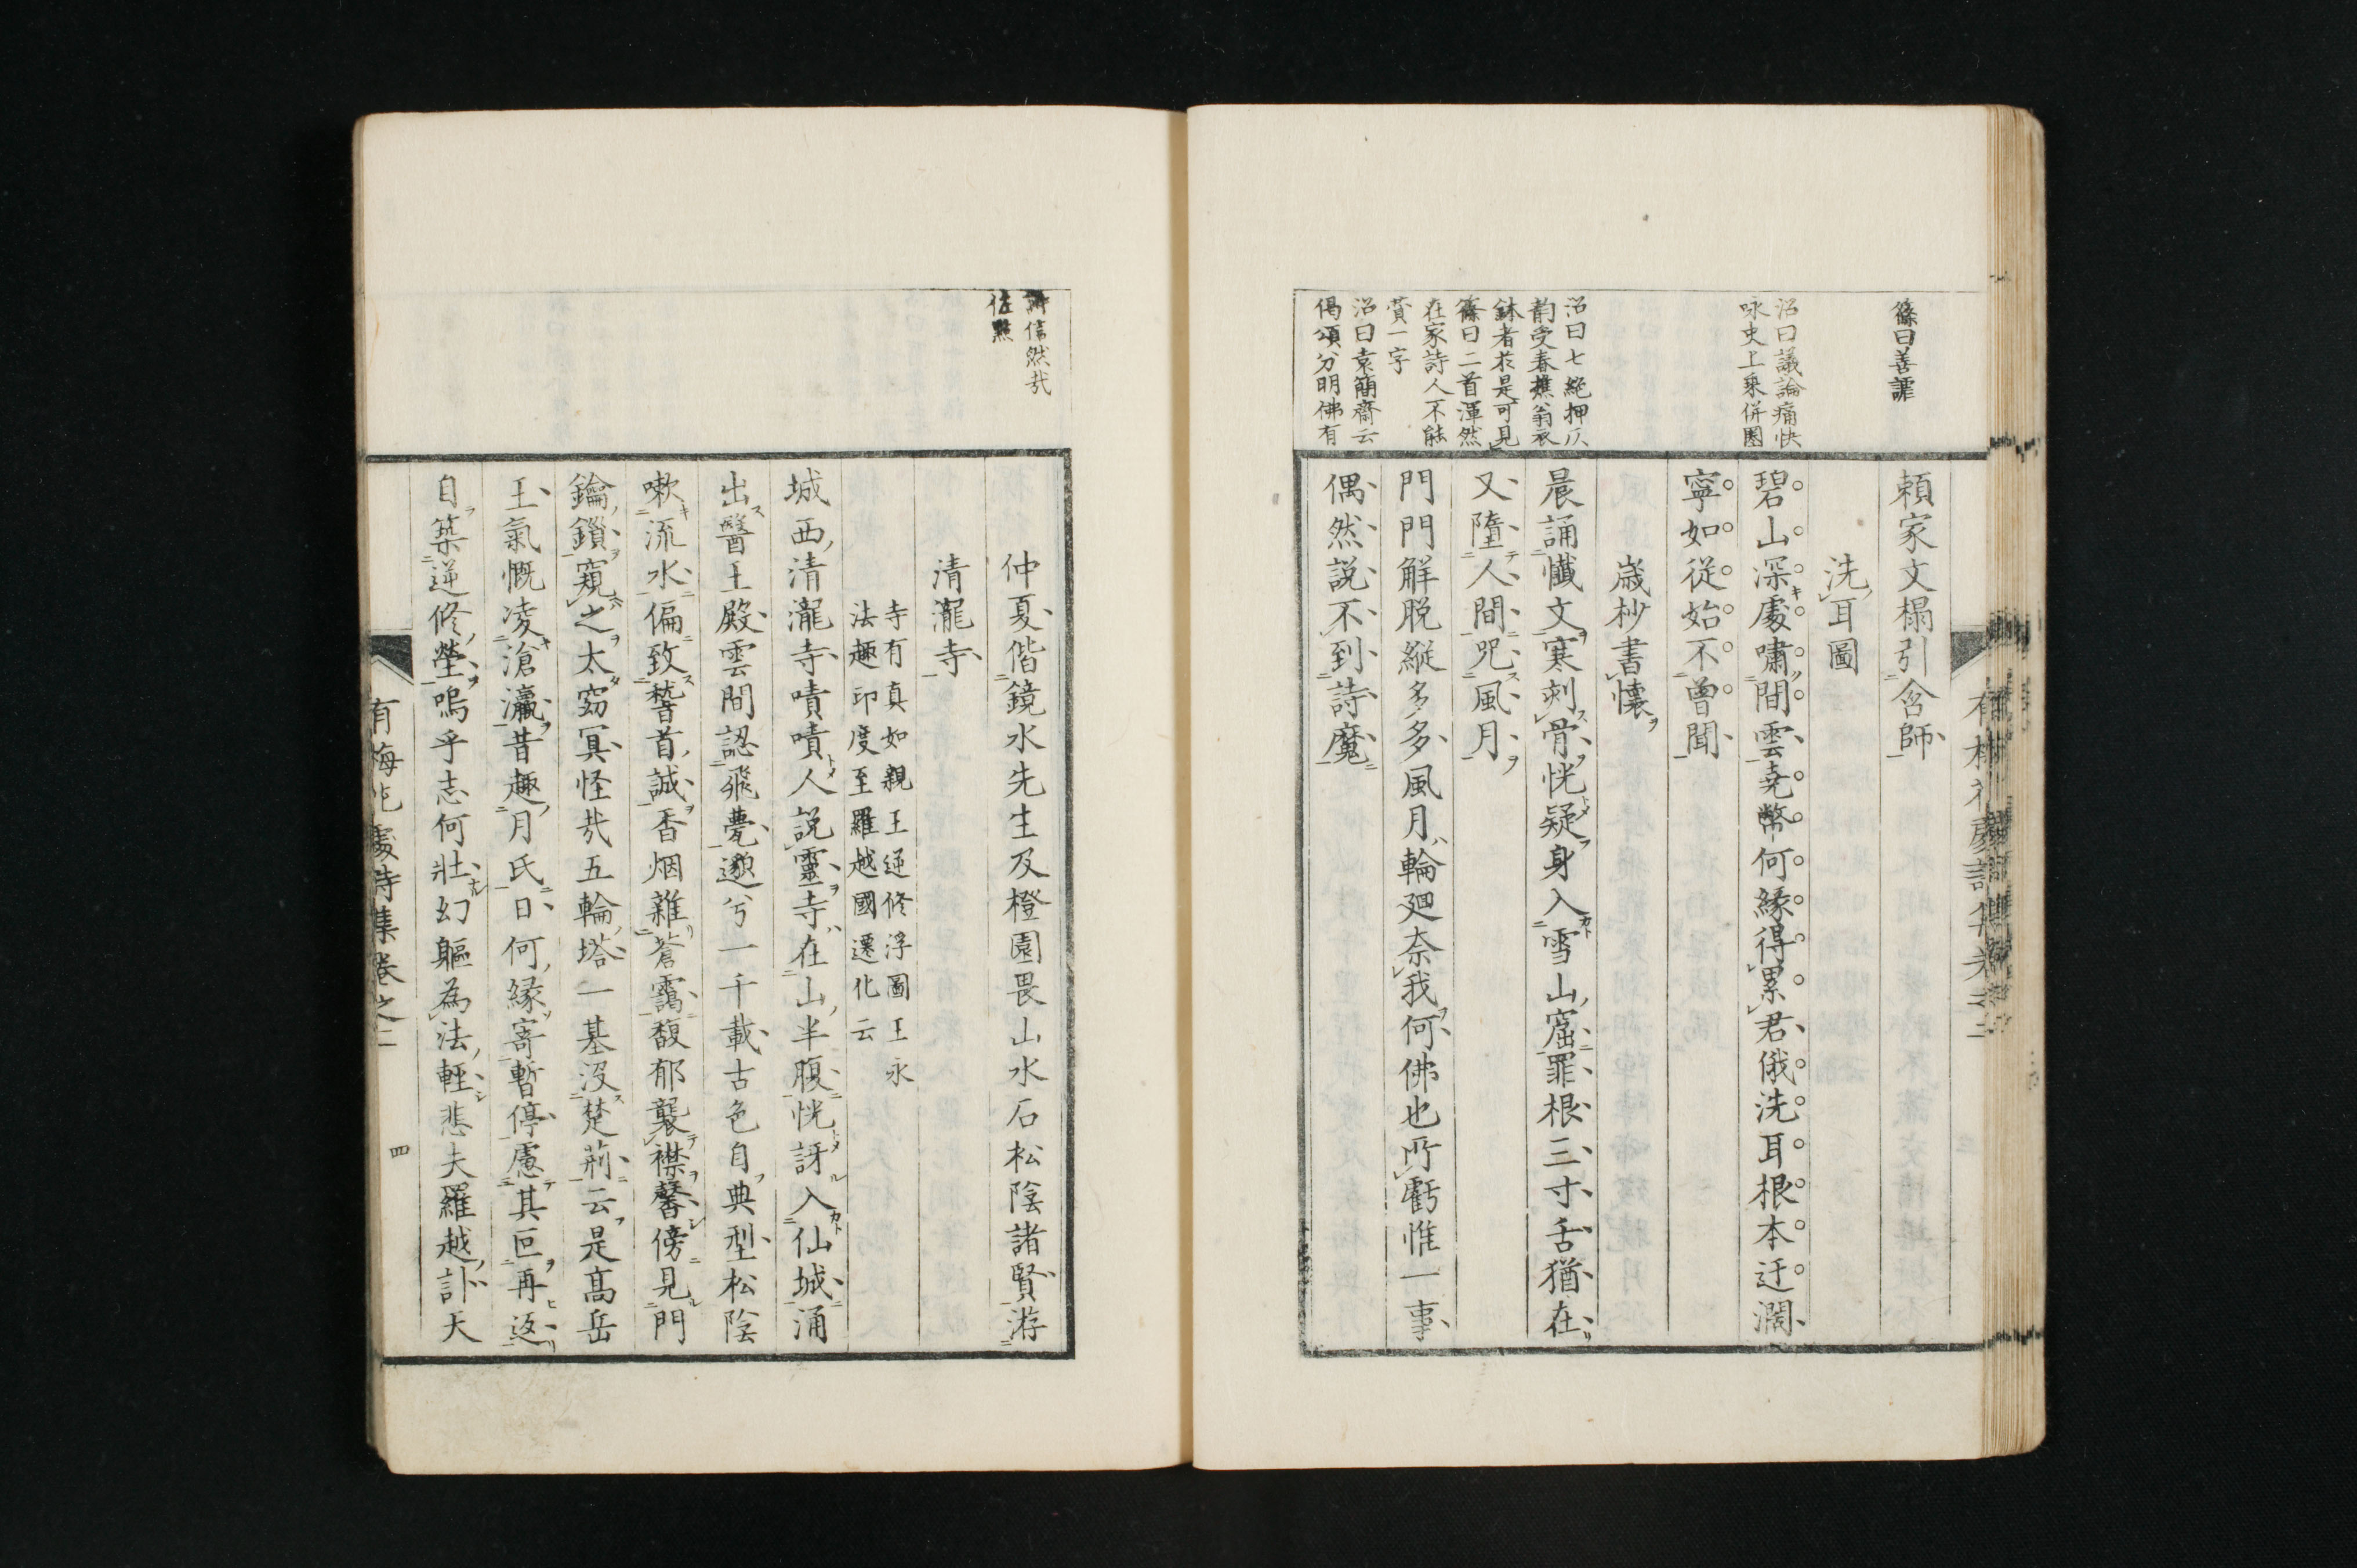 篠曰善謔
沼曰議論痛快
咏史上乘併圏
沼曰七絶押仄
韵受春樵翁衣
鉢者於是可見
篠曰二首渾然
在家詩人不能
賛一字
沼曰袁簡齋云
偈頌分明佛有
頼家文榻引含師
洗耳圖
碧山深處嘯間雲堯幣何縁得累君俄洗耳根本迂濶
寧如從始不曽聞
歳杪書懐
晨誦懺文寒刺骨恍疑身入雪山窟罪根三寸舌猶在
又墮人間咒風月
門門解脱縦多多風月輪廻奈我何佛也所虧惟一事
偶然説不到詩魔
有梅花處詩集卷之二
信然哉
佐㸃
仲夏偕鏡水先生及橙園畏山水石松陰諸賢游
清瀧寺
寺有真如親王逆修浮圖王永
法趣印度至羅越國遷化云
城西清瀧寺嘖嘖人説靈寺在山半腹恍訝入仙城涌
出醫王殿雲間認飛甍邈兮一千載古色自典型松陰
嗽流水偏致䭫首誠香烟雜蒼靄馥郁襲襟馨傍見門
鑰鎖窺之太窈冥怪哉五輪塔一基没楚荊云是髙岳
王氣慨凌滄瀛昔趣月氏日何縁寄暫停慮其叵再返
自築逆修塋嗚乎志何壮幻軀為法輕悲夫羅越訃天
有梅花處詩集卷之二
四